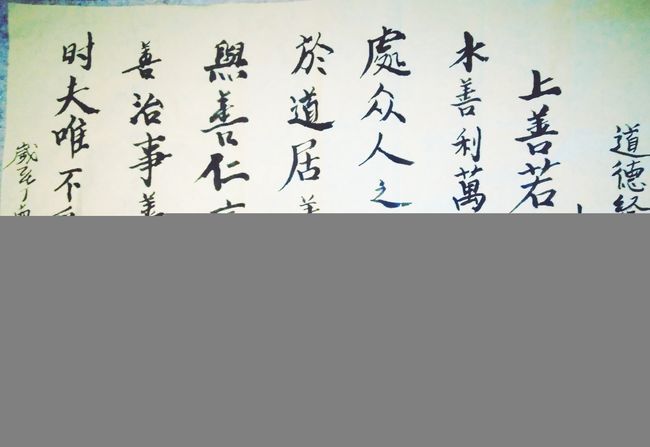 道德经
上善若
水善利萬
處众人之
於道居善
與善仁言
善治事善
时夫唯不
歲在丁酉